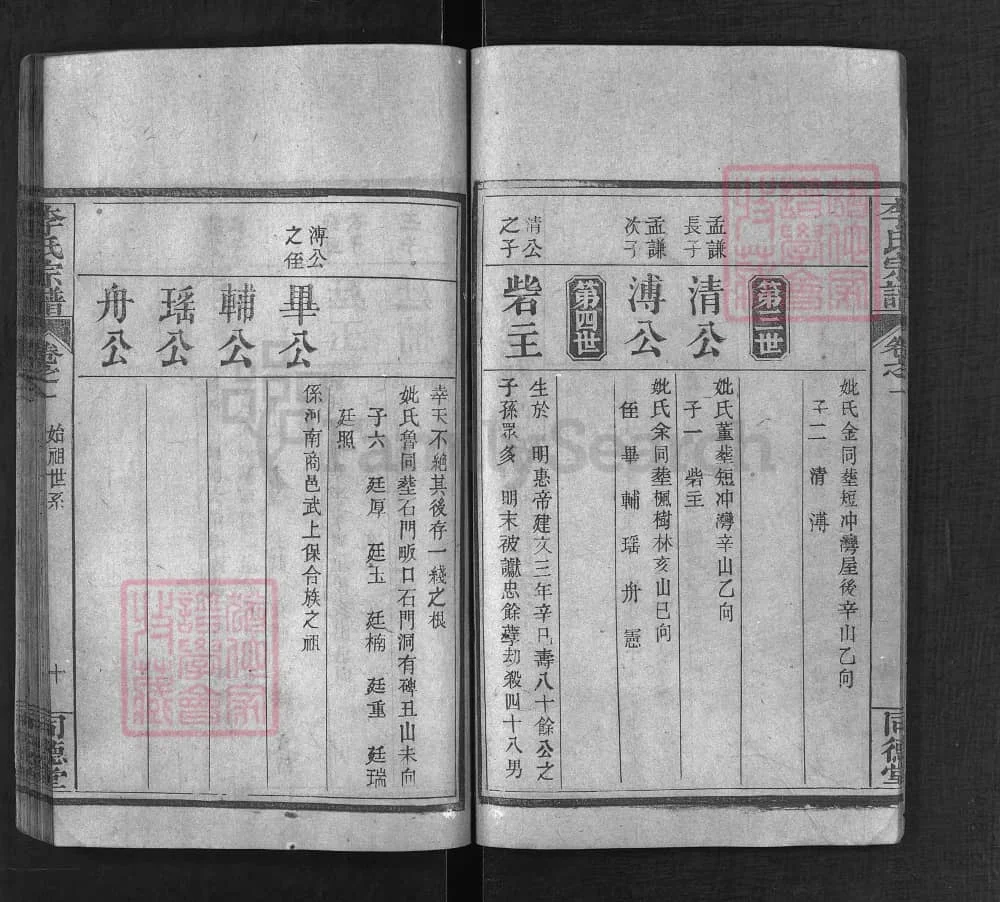 李氏宗譜
卷之一
同德堂
妣氏金同塟短冲灣屋後辛山乙向
子二 清 溥
第三世
孟謙長子
清公
妣氏董塟短冲灣辛山乙向
子一 砦主
孟謙次子
溥公
妣氏余同塟楓樹林亥山巳向
侄 畢 輔 瑶 舟 憲
第四世
清公之子
砦主
生於 明惠帝建文三年辛巳壽八十餘公之
子孫眾多 明末被讞忠餘孽刧殺四十八男
幸天不絶其後存一綫之根
妣氏魯同塟石門畈口石門洞有碑丑山未向
子六 廷厚 廷玉 廷楠 廷重 廷瑞
廷照
溥公之侄
畢公
係河南商邑武上保合族之祖
輔公
瑶公
舟公
李氏宗譜
卷之一
始祖世系
十
同德堂
FamilySearch